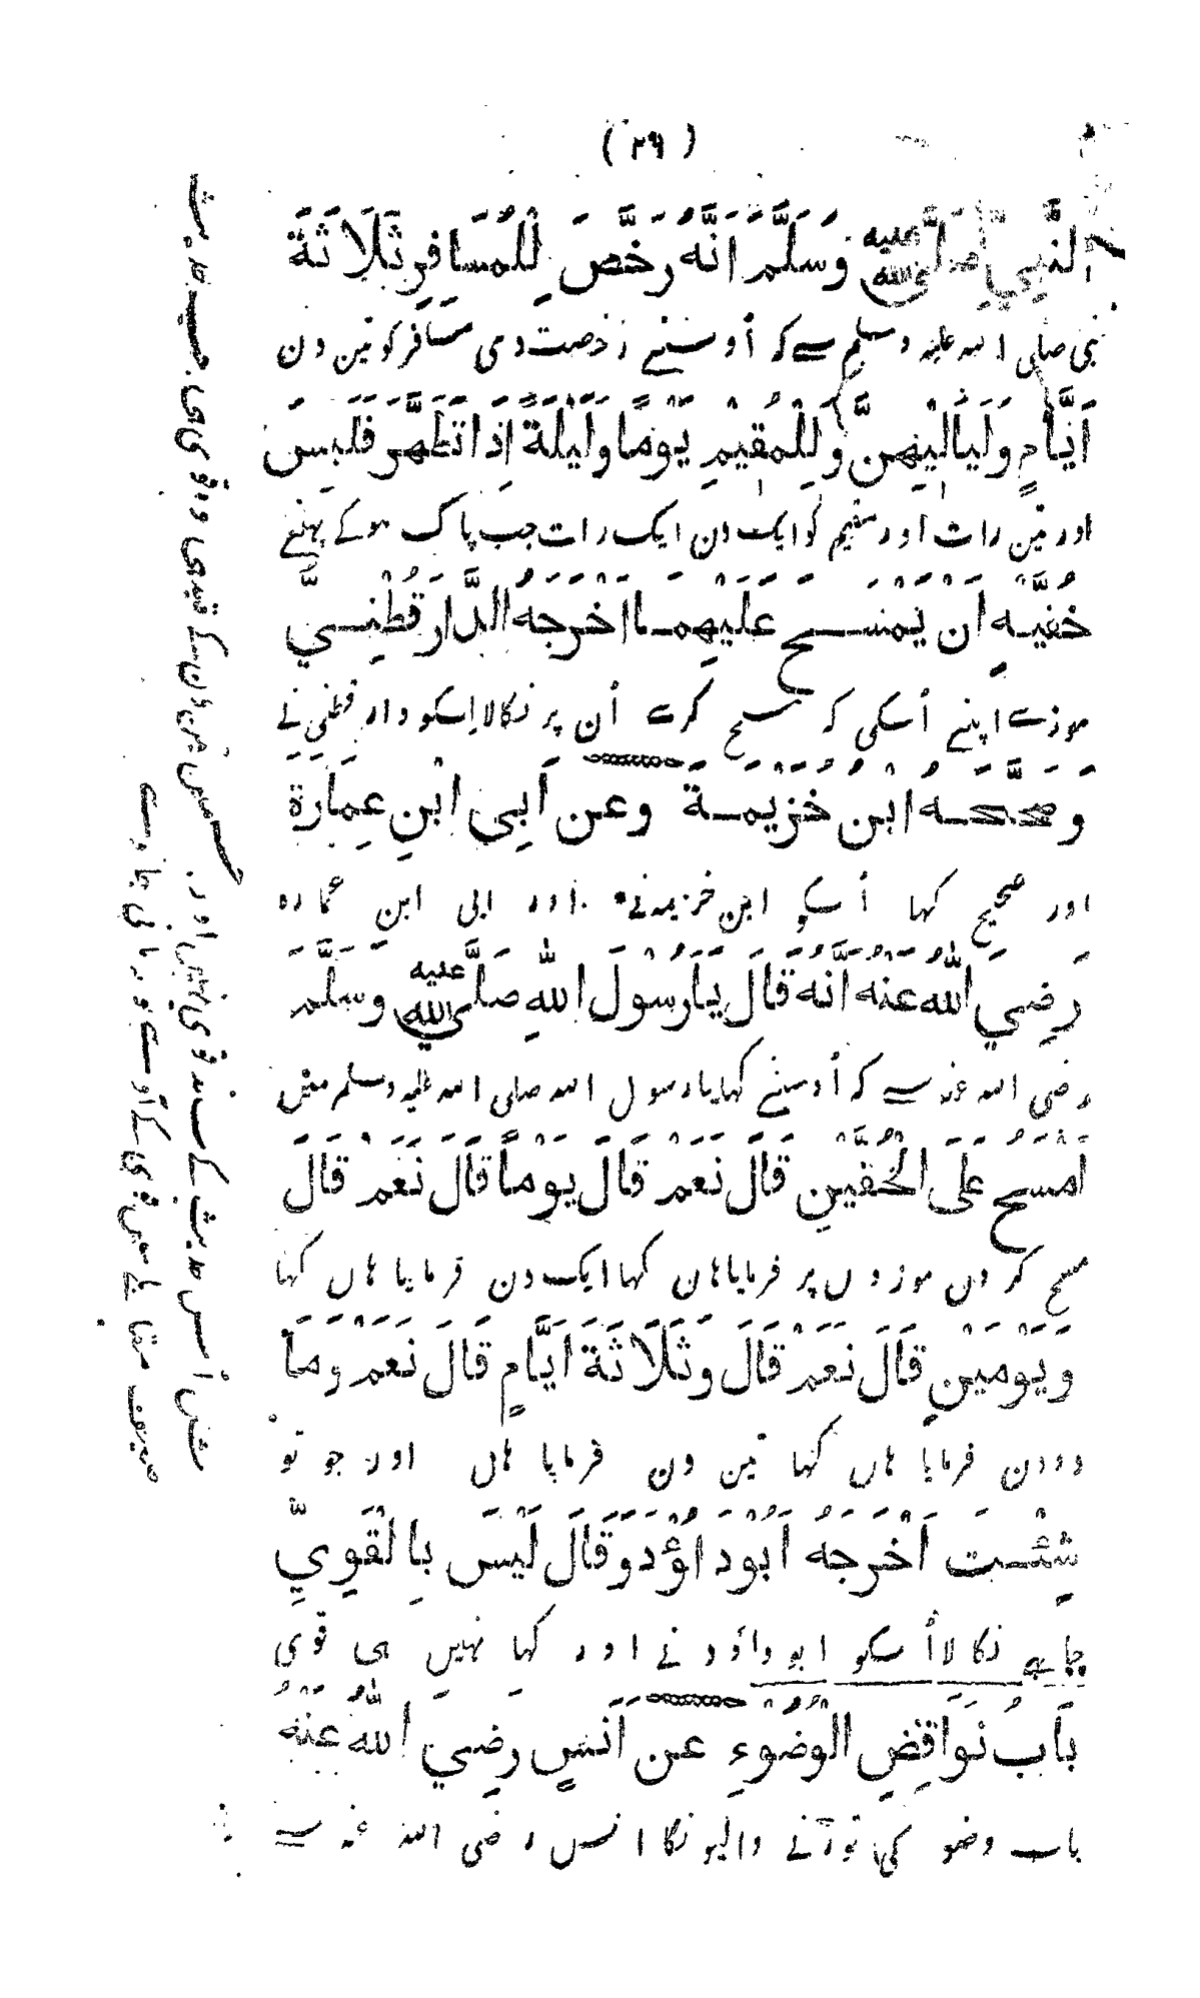 ( ٢٩ )
النَّبِيِّ صَلَّى اللّٰه عليه وَسَلَّمَ اَنَّهُ رَخَّصَ لِلْمُسَافِرِ ثَلَاثَةَ
نبی صلی اللہ علیہ وسلم سے کہ اُوسنے رخصت دی مسافر کو تین دن
اَيَّامٍ وَلَيَالِيْهِنَّ وَلِلْمُقِيْمِ يَوْمًا وَلَيْلَةً اِذَا تَطَهَّرَ فَلَبِسَ
اور تین رات اور مقیم کو ایک دن ایک رات جب پاک ہوکے پہنے
خُفَّيْهِ اَنْ يَمْسَحَ عَلَيْهِمَا اَخْرَجَهُ الدَّارَقُطْنِيُّ
موزے اپنے اُسکی کہ مسح کرے اُن پر نکالا اِسکو دارقطنی نے
وَصَحَّحَهُ ابْنُ خُزَيْمَةَ وَعَنْ اَبِي ابْنِ عِمَارَةَ
اور صحیح کہا اُسکو ابن خزیمہ نے اور ابی ابن عمارہ
رَضِيَ اللّٰهُ عَنْهُ اَنَّهُ قَالَ يَا رَسُوْلَ اللّٰهِ صَلَّى اللّٰه عليه وَسَلَّمَ
رضی اللہ عنہ سے کہ اُوسنے کہا یا رسول اللہ صلی اللہ علیہ وسلم میں
اَمْسَحُ عَلَى الْخُفَّيْنِ قَالَ نَعَمْ قَالَ يَوْماً قَالَ نَعَمْ قَالَ
مسح کروں موزوں پر فرمایا ہان کہا ایک دن فرمایا ہاں کہا
وَيَوْمَيْنِ قَالَ نَعَمْ قَالَ وَثَلَاثَةَ اَيَّامٍ قَالَ نَعَمْ وَمَا
دودن فرمایا ہاں کہا تین دن فرمایا ہاں اور جو تو
شِئْتَ اَخْرَجَهُ اَبُوْدَاؤُدَ وَقَالَ لَيْسَ بِالْقَوِيِّ
چاہے نکالا اُسکو ابوداؤد نے اور کہا نہیں ہی قوی
بَابُ نَوَاقِضِ الْوُضُوْءِ عَنْ اَنَسٍ رَضِيَ اللّٰهُ عَنْهُ
باب وضو کی توڑنے والیونکا انس رضی اللہ عنہ سے